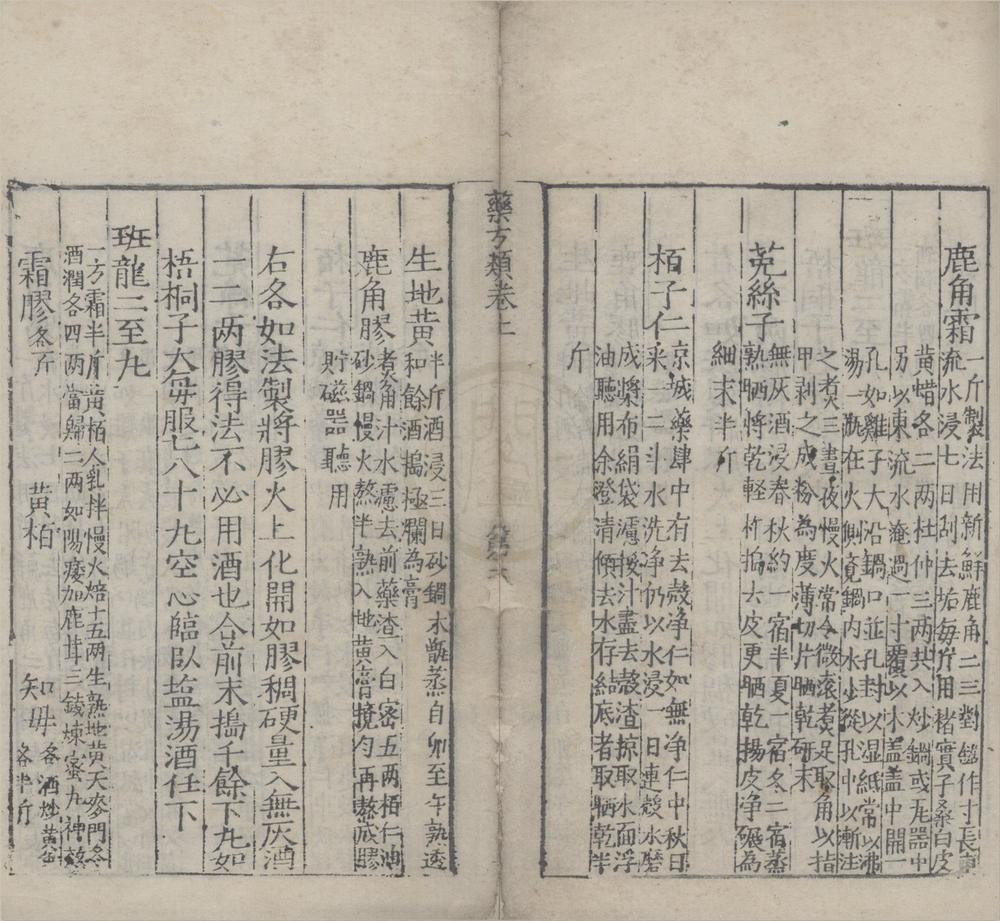 鹿角霜
一斤製法用新鮮鹿角二三對鋸作寸長
流水浸七日刮去垢每斤用楮實子桑白皮
黃蜡各二兩杜仲三兩共入炒鍋或瓦器中
另以東流水淹過一寸覆以木盖盖中開一
孔如雞子大沿鍋口並孔封以湿紙常以沸
湯一瓶在火側竟鍋內水少從孔中以漸注
之煮三晝夜慢火常令微滾煮足取角以指
甲剥之成粉為度薄切片晒乾研末
菟絲子
無灰酒浸春秋約一宿半夏一宿冬二宿蒸
熟晒將乾輕杵搗去皮更晒乾揚皮净碾為
細末半斤
栢子仁
京城藥肆中有去殼净仁如無净仁中秋日
采一二斗水洗净仍以水浸一日連殼水磨
成漿布絹袋濾挼汁盡去殼渣掠取水面浮
油聽用余澄清傾去水存結底者取晒乾半
斤
藥方類卷上
生地黃
半斤酒浸三日砂鍋木甑蒸自卯至午熟透
和餘酒搗極爛為膏
鹿角膠
煮角汁水慮去前藥渣入白蜜五兩栢仁油
砂鍋慢火熬半熟入地黃膏攪勻再熬成膠
貯磁器聽用
右各如法製將膠火上化開如膠稠硬量入無灰酒
一二兩膠得法不必用酒也合前末搗千餘下丸如
梧桐子大每服七八十丸空心臨臥塩湯酒任下
班龍二至丸
一方霜半斤黃栢人乳拌慢火焙十五兩生熟地黃天麥門冬
酒潤各四兩當歸二兩如陽痿加鹿茸三錢煉蜜丸神效
霜膠
各斤
黃栢
知母
各酒炒黃色
各半斤